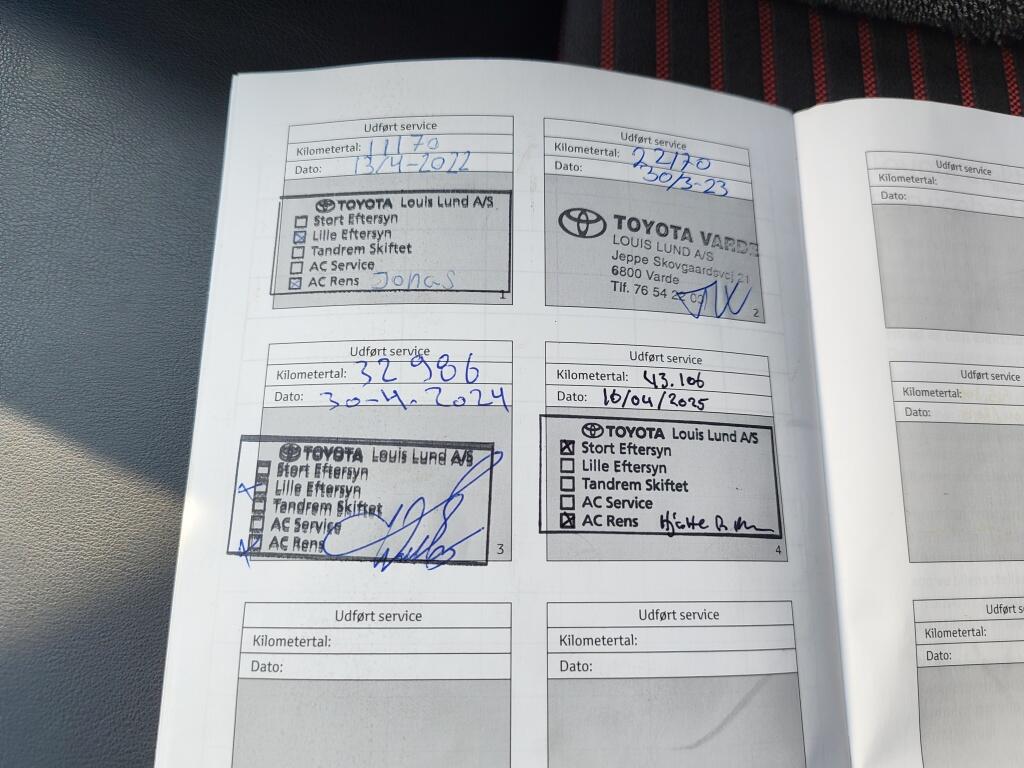 Udført service
Kilometertal: 11170
Dato: 13/4-2022
TOYOTA Louis Lund A/S
Stort Eftersyn
Lille Eftersyn
Tandrem Skiftet
AC Service
AC Rens Jonas
1
Udført service
Kilometertal: 22170
Dato: 30/3-23
TOYOTA VARDE
LOUIS LUND A/S
Jeppe Skovgaardsvej 21
6800 Varde
Tlf. 76 54 22 02
2
Udført service
Kilometertal: 32986
Dato: 30-4-2024
TOYOTA Louis Lund A/S
Stort Eftersyn
Lille Eftersyn
Tandrem Skiftet
AC Service
AC Rens
3
Udført service
Kilometertal: 43.106
Dato: 16/04/2025
TOYOTA Louis Lund A/S
Stort Eftersyn
Lille Eftersyn
Tandrem Skiftet
AC Service
AC Rens
4
Udført service
Kilometertal:
Dato:
Udført service
Kilometertal:
Dato:
Udført service
Kilometertal:
Dato:
Udført service
Kilometertal:
Dato:
Kilometertal:
Dato: